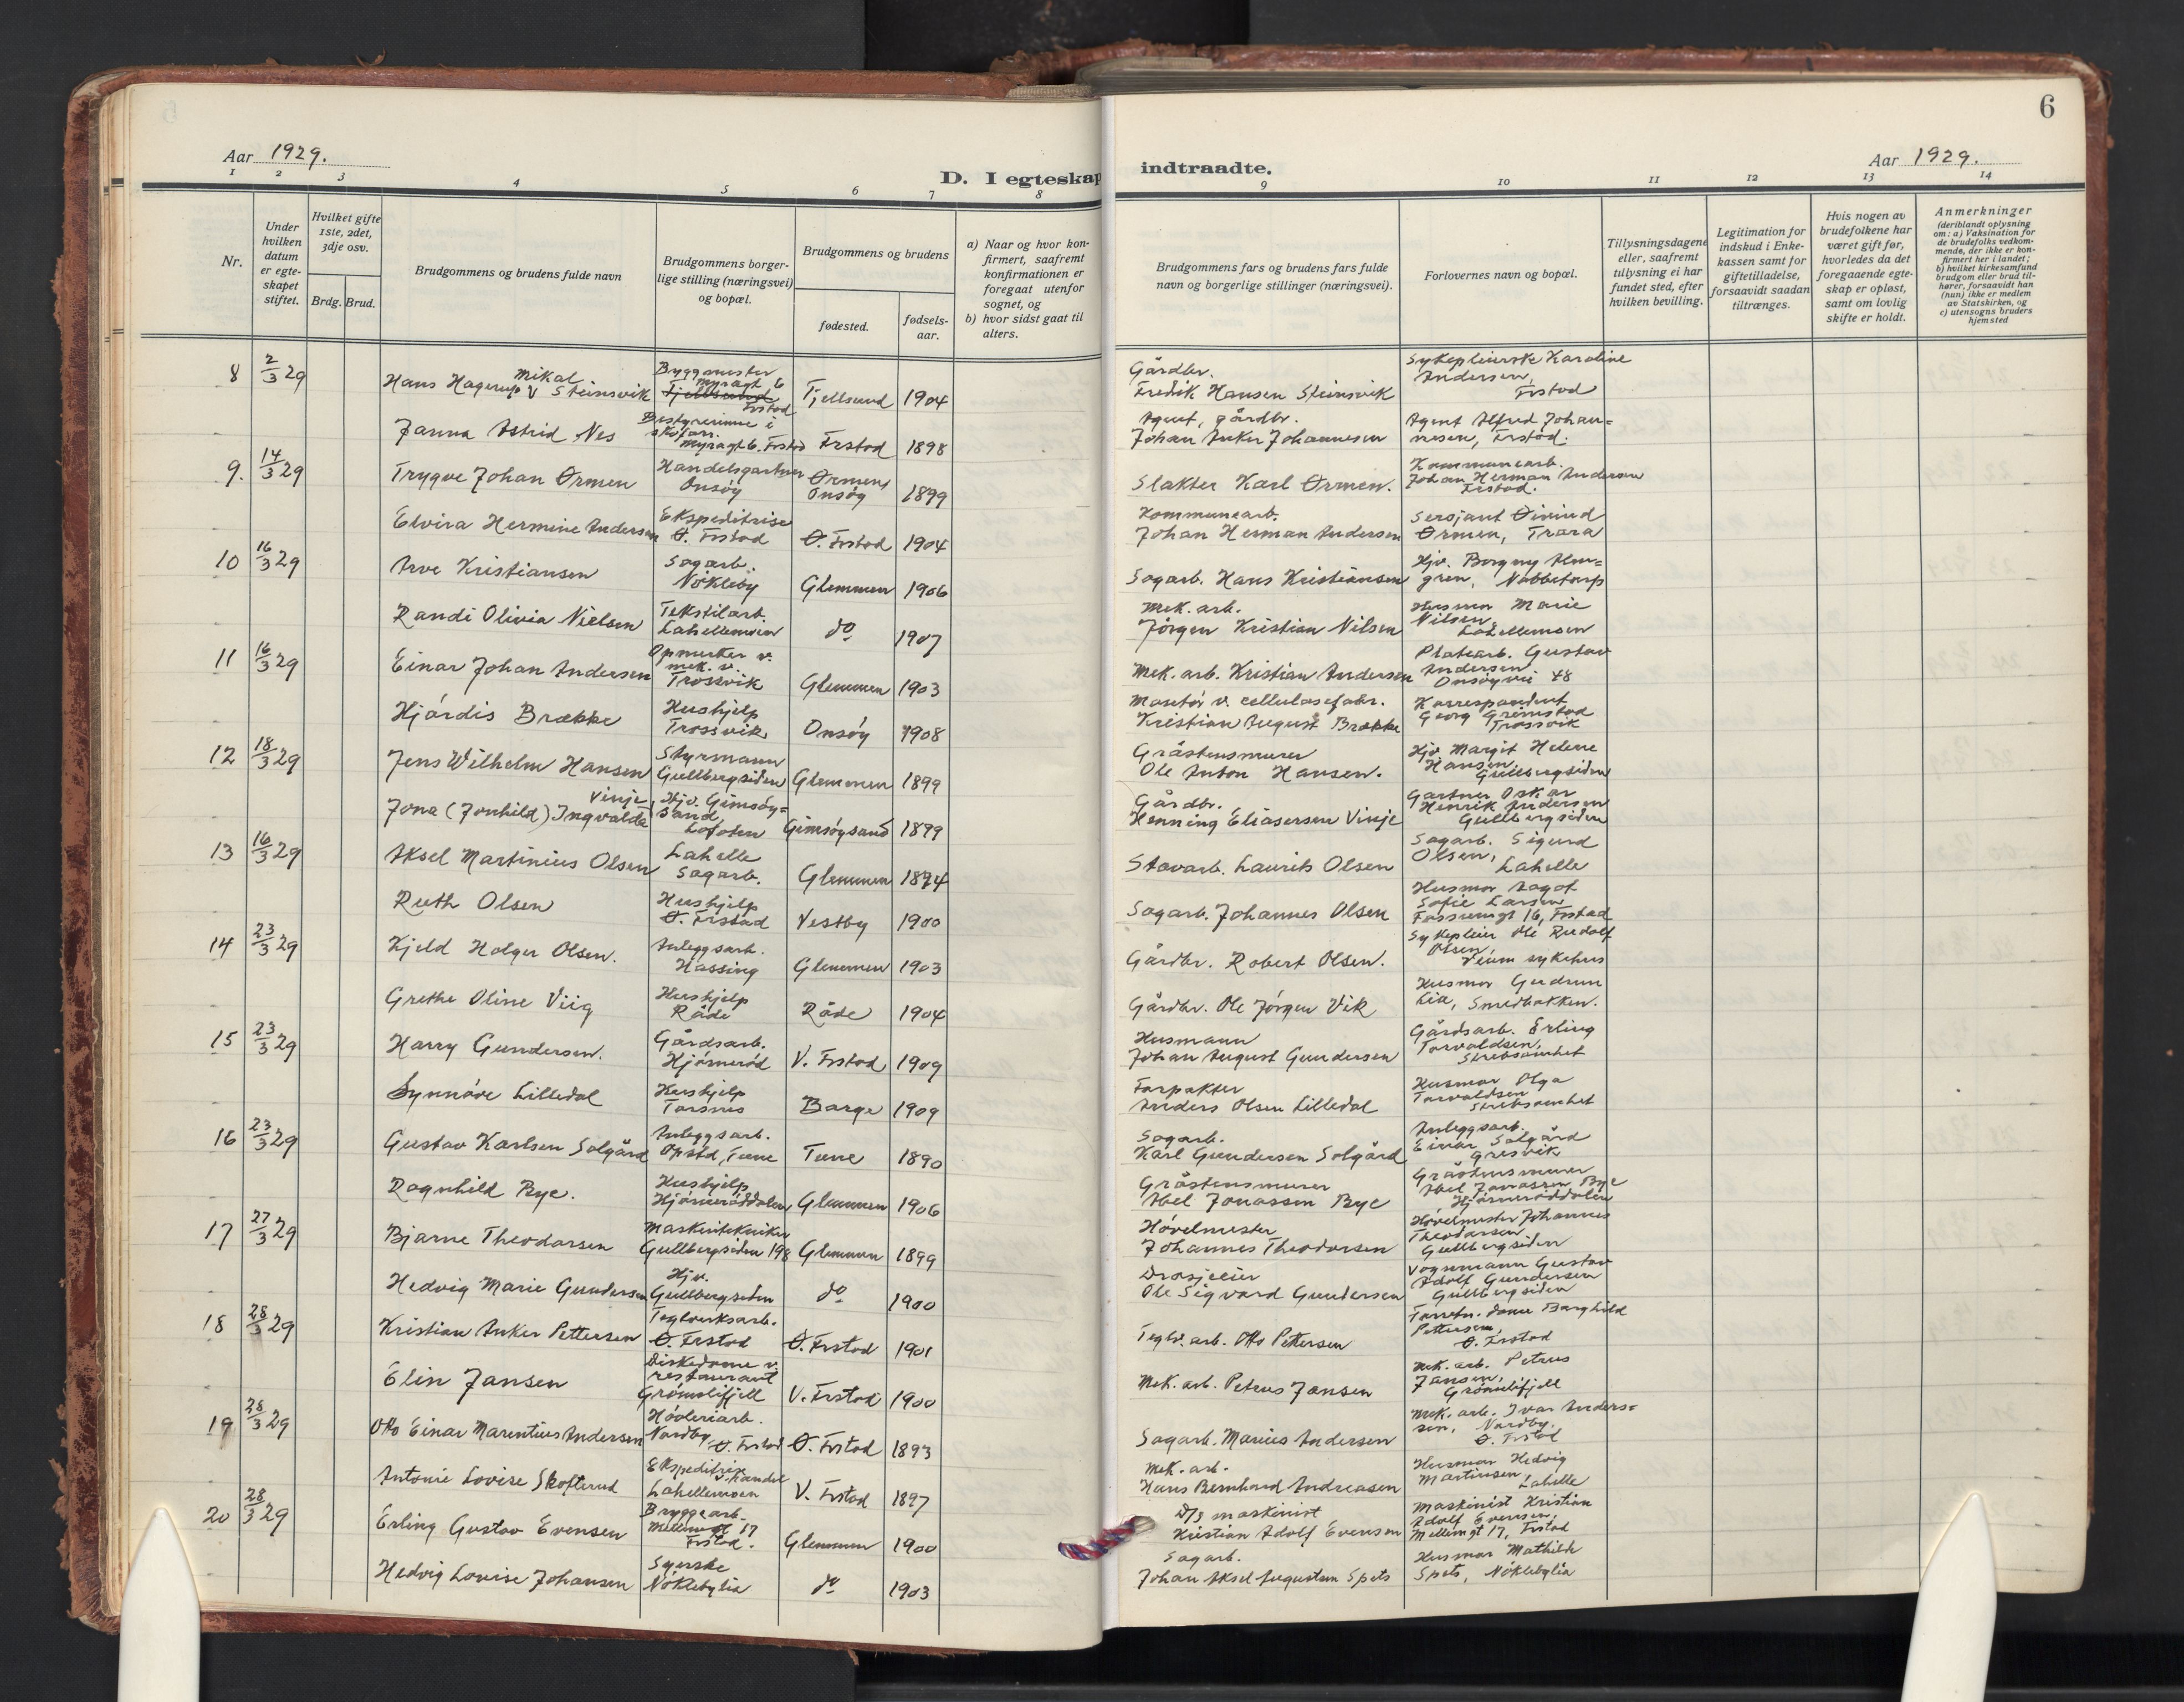 6
Aar 1929.
D. I egteskap indtraadte.
Aar 1929.
1 2 3 4 5 6 7 8 9 10 11 12 13 14
Nr.
Under hvilken datum er egteskapet stiftet.
Hvilket gifte 1ste, 2det, 3dje osv.
Brdg. Brud.
Brudgommens og brudens fulde navn
Brudgommens borgerlige stilling (næringsvei) og bopæl.
Brudgommens og brudens
fødested.
fødselsaar.
a) Naar og hvor konfirmert, saafremt konfirmationen er foregaat utenfor sognet, og
b) hvor sidst gaat til alters.
Brudgommens fars og brudens fars fulde navn og borgerlige stillinger (næringsvei).
Forlovernes navn og bopæl.
Tillysningsdagene eller, saafremt tillysning ei har fundet sted, efter hvilken bevilling.
Legitimation for indskud i Enkekassen samt for giftetilladelse, forsaavidt saadan tiltrænges.
Hvis nogen av brudefolkene har været gift før, hvorledes da det foregaaende egteskap er opløst, samt om lovlig skifte er holdt.
Anmerkninger (deriblandt oplysning om: a) Vaksination for de brudefolks vedkommende, der ikke er konfirmert her i landet; b) hvilket kirkesamfund brudgom eller brud tilhører, forsaavidt han (hun) ikke er medlem av Statskirken, og c) utensogns bruders hjemsted
8 2/3 29 Hans Hagerup Mikal Steinsvik Byggmester Myragt 6 Fjellsund Frstad Tjellsund 1904 Gårdbr. Fredik Hansen Steinsvik Sykepleierske Karoline Andersen, Frstad
Janna Astrid Nes Bestyrerinne i skoforr. Myragt 6. Frstad Frstad 1898 Agent, gårdbr. Johan Anker Johannesen Agent Alfred Johannesen, Frstad.
9. 14/3 29 Trygve Johan Ørmen Handelsgartner Onsøy Ørmen, Onsøy 1899 Slakter Karl Ørmen. Kommunearb. Johan Herman Andersen Frstad.
Elvira Hermine Andersen Ekspeditrise Ø. Frstad Ø. Frstad 1904 Kommunearb. Johan Herman Andersen Sersjant Øivind Ørmen, Trara
10 16/3 29 Arve Kristiansen Sagarb. Nøkleby Glemmen 1906 Sagarb. Hans Kristiansen Hjv. Borgny Almgren, Nabbetorp
Randi Olivia Nielsen Tekstilarb. Lahellemoen do 1907 Mek. arb. Jørgen Kristian Nilsen Husmor Marie Nilsen, Lahellemoen
11 16/3 29 Einar Johan Andersen Opmerker v. mek. v. Trosvik Glemmen 1903 Mek. arb. Kristian Andersen Platearb. Gustav Andersen Onsøyvei 48
Hjørdis Brække Hushjelp Trossvik Onsøy 1908 Montør v. cellulosefabr. Kristian August Brække Korrespondent Georg Grimstad Trossvik
12 18/3 29 Jens Wilhelm Hansen Styrmann Gullbergsiden Glemmen 1899 Gråstensmurer Ole Anton Hansen. Hjv. Margit Helene Hansen, Gullbergsiden
Jona (Jonhild) Ingvalda Vinje Hjv. Gimsøysand, Lofoten Gimsøysand 1899 Gårdbr. Henning Eliasersen Vinje Gartner Oskar Henrik Andersen Gullbergsiden
13 16/3 29 Aksel Martinius Olsen Lahelle Sagarb. Glemmen 1894 Stavarb. Laurits Olsen Sagarb. Sigurd Olsen, Lahelle
Ruth Olsen Hushjelp Ø. Frstad Vestby 1900 Sagarb. Johannes Olsen Husmor Agot Sofie Larsen Fossumgt 16, Frstad
14 23/3 29 Kjeld Holger Olsen. Anleggsarb. Hassing Glemmen 1903 Gårdbr. Robert Olsen. Sykepleier Ole Rudolf Olsen, Veum sykehus
Grethe Oline Viig Hushjelp Råde Råde 1904 Gårdbr. Ole Jørgen Vik Husmor Gudrun Lia, Smedbakken.
15 23/3 29 Harry Gundersen. Gårdsarb. Hjørnerød V. Frstad 1909 Husmann Johan August Gundersen Gårdsarb. Erling Torvaldsen, Strebsomhet
Synnøve Lilledal Hushjelp Torsnes Borge 1909 Forpakter Anders Olsen Lilledal Husmor Olga Torvaldsen Strebsomhet
16 23/3 29 Gustav Karlsen Solgård Anleggsarb. Opstd, Tune Tune 1890 Sagarb. Karl Gundersen Solgård Anleggsarb. Einar Solgård Gresvik
Ragnhild Bye. Hushjelp Hjørnerøddalen Glemmen 1906 Gråstensmurer Abel Jonassen Bye Gråstensmurer Abel Jonassen Bye Hjørnerøddalen
17 27/3 29 Bjarne Theodorsen Maskintekniker Gullbergsiden 198 Glemmen 1899 Høvelmester Johannes Theodorsen Høvelmester Johannes Theodorsen Gullbergsiden
Hedvig Marie Gundersen Hjv. Gullbergsiden do 1900 Drosjeeier Ole Sigvard Gundersen Vognmann Gustav Adolf Gundersen Gullbergsiden
18 28/3 29 Kristian Anker Pettersen Teglverksarb. Ø. Frstad Ø. Frstad 1901 Teglv. arb. Otto Pettersen Forretn. dame Borghild Pettersen, Ø. Frstad
Elin Jansen Diskedame v. restaurant Grønnlifjell V. Frstad 1900 Mek. arb. Petrus Jansen Mek. arb. Petrus Jansen, Grønnlifjell
19 28/3 29 Otto Einar Marentius Andersen Høvleriarb. Nordby, Ø. Frstad Ø. Frstad 1893 Sagarb. Marius Andersen Mek. arb. Ivar Anderssen, Nordby. Ø. Frstad
Antonie Lovise Skofterud Ekspeditrise v. handel Lahellemoen V. Frstad 1897 Mek. arb. Hans Bernhard Andreasen Husmor Hedvig Martinsen, Lahelle
20 28/3 29 Erling Gustav Evensen Bryggearb. Mellemgt 17 Frstad. Glemmen 1900 D/s maskinist Kristian Adolf Evensen Maskinist Kristian Adolf Evensen, Mellemgt 17, Frstad
Hedvig Lovise Johansen Syerske Nøklebylia do 1903 Sagarb. Johan Aksel Augustsen Spets Husmor Mathilde Spets, Nøklebylia